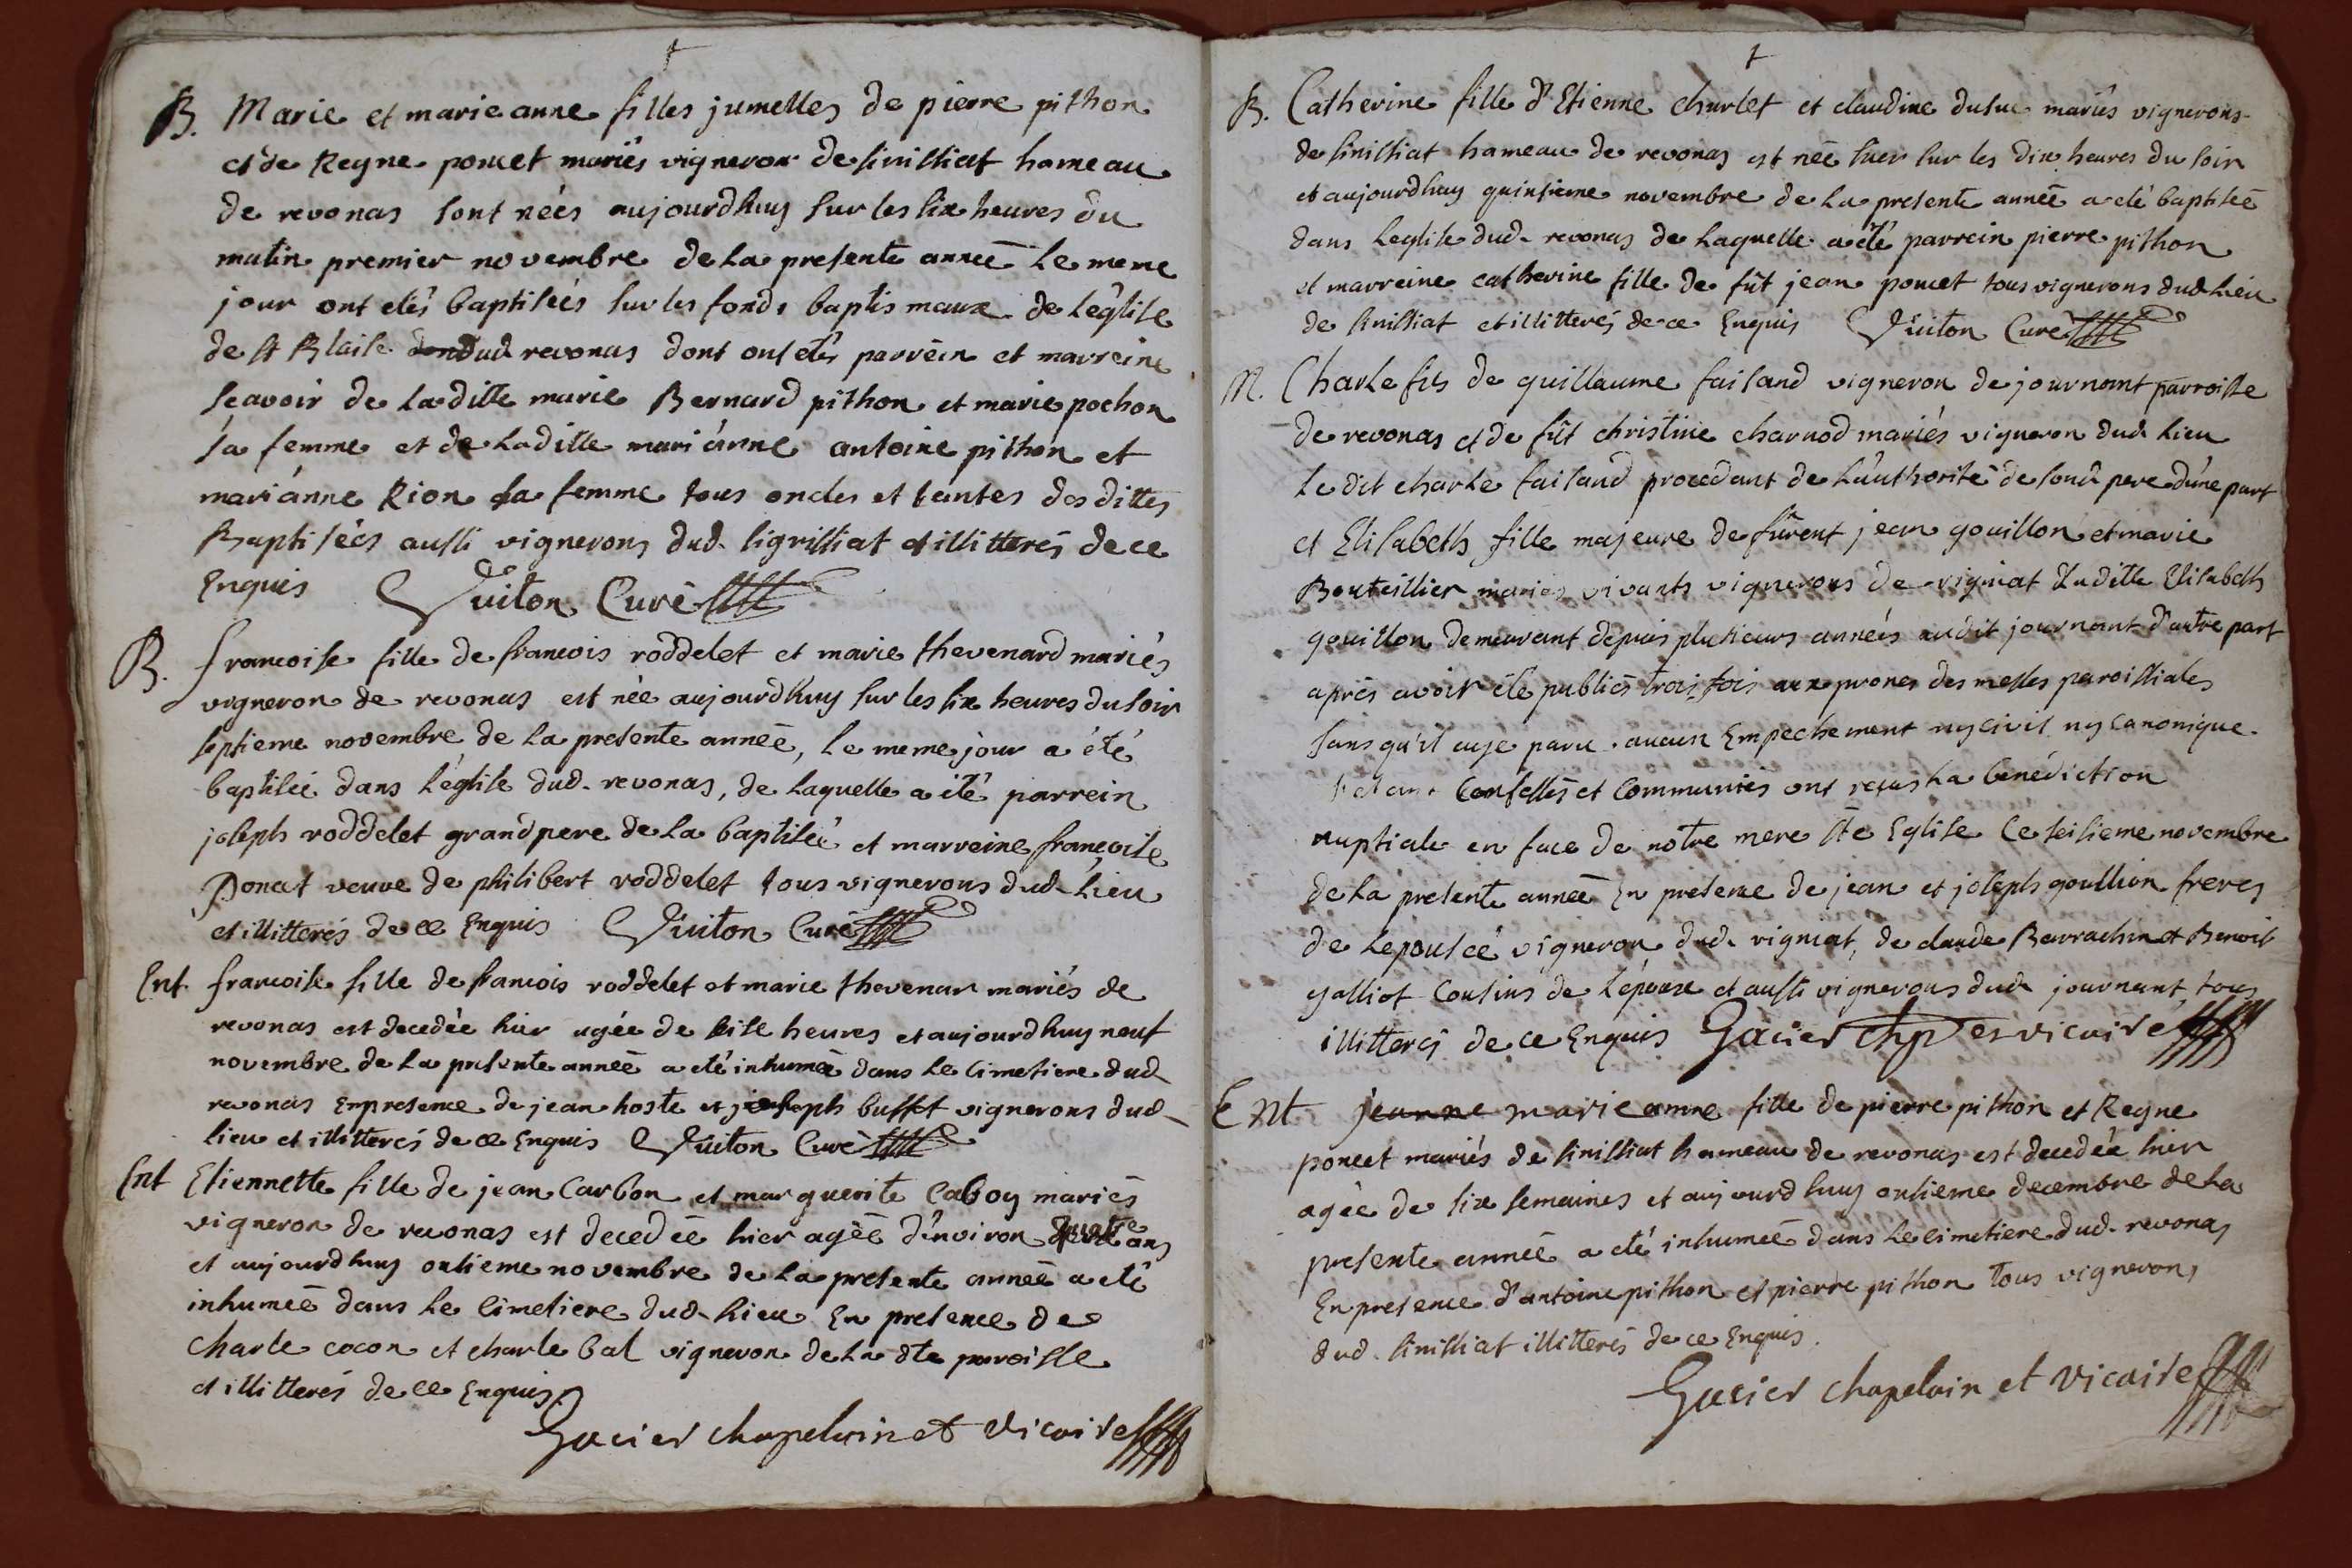 B. Marie et marie anne filles jumelles de pierre pithon
et de Reyne poncet mariés vigneron de sinissiat hameau
de revonas sont nées aujourdhuy sur les six heures du
matin premier novembre de la presente année le meme
jour ont étés baptisées sur les fonds baptismaux de léglise
de st Blaise dud revonas dont ont etés parrein et marreine
scavoir de laditte marie Bernard pithon et marie pochon
sa femme et de laditte mariánne antoine pithon et
mariánne Rion sa femme tous oncles et tantes des dittes
Baptisées aussi vignerons dud. signissiat et illitterés de ce
Enquis Vuiton Curé
B. francoise fille de francois roddelet et marie thevenard mariés
vigneron de revonas est née aujourdhuy sur les six heures du soir
septieme novembre de la presente année, le meme jour a été
baptisée dans léglise dud. revonas, de laquelle a été parrein
joseph roddelet grand pere de la baptisée et marreine francoise
Donat veuve de philibert roddelet tous vignerons dud. lieu
et illitterés de ce Enquis Vuiton Curé
Ent. francoise fille de francois roddelet et marie thevenar mariés de
revonas est decedée hier agée de seise heures et aujourdhuy neuf
novembre de la presente année a été inhumée dans le cimetiere dud
revonas En presence de jean hoste et joseph buffet vignerons dud
lieu et illitterés de ce Enquis Vuiton Curé
Ent Etiennette fille de jean Carbon et marguerite Caboy mariés
vigneron de revonas est decedée hier agée d'environ quatre ans
et aujourdhuy onsieme novembre de la presente année a eté
inhumée dans le cimetiere dud. lieu En presence de
charle cocon et charle bal vigneron de la dte paroisse
et illitterés de ce Enquis
Gacier chapelain et vicaire
B. Catherine fille d'Etienne charlet et claudine dusuc mariés vignerons
de sinissiat hameau de revonas est née hier sur les dix heures du soir
et aujourdhuy quinsieme novembre de la presente année a eté baptisée
dans leglise dud. revonas de laquelle a été parrein pierre pithon
et marreine catherine fille de fût jean poncet tous vignerons dud lieu
de sinissiat et illitterés de ce Enquis Vuiton Curé
M. Charle fils de guillaume faisand vigneron de journant parroisse
de revonas et de fût christine charnod mariés vigneron dud. lieu
le dit charle faisand procedant de l'authorité de sond. pere d'une part
et Elisabeth fille majeure de fûrent jean gouillon et marie
Bouteillier mariés vivants vignerons de vigniat Laditte Elisabeth
gouillon demeurant depuis plusieurs années audit journant d'autre part
aprés avoir été publiés trois fois aux prones des messes paroissiales
sans qu'il aye paru aucun Empechement ny civil ny canonique
s'étant Confessés et Communiés ont reçus la benédiction
nuptiale en face de notre mere ste Eglise ce seisieme novembre
de la presente année En presence de jean et joseph goullion freres
de lepousée vigneron dud. vigniat, de claude Barrachin et Benoit
galliot Cousins de l'époux et aussi vignerons dud. journant, tous
illitterés de ce Enquis Gacier chp et vicaire
Ent jeanne marie anne fille de pierre pithon et Reyne
poncet mariés de sinissiat hameau de revonas est decedée hier
agée de six semaines et aujourdhuy onsieme decembre de la
presente année a eté inhumée dans le cimetiere dud. revonas
En presence d'antoine pithon et pierre pithon Tous vignerons
dud. sinissiat illitterés de ce Enquis.
Gacier chapelain et vicaire